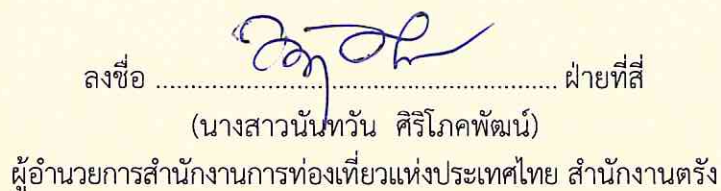 ลงชื่อ ............................................................ ฝ่ายที่สี่
(นางสาวนันทวัน ศิริโภคพัฒน์)
ผู้อำนวยการสำนักงานการท่องเที่ยวแห่งประเทศไทย สำนักงานตรัง